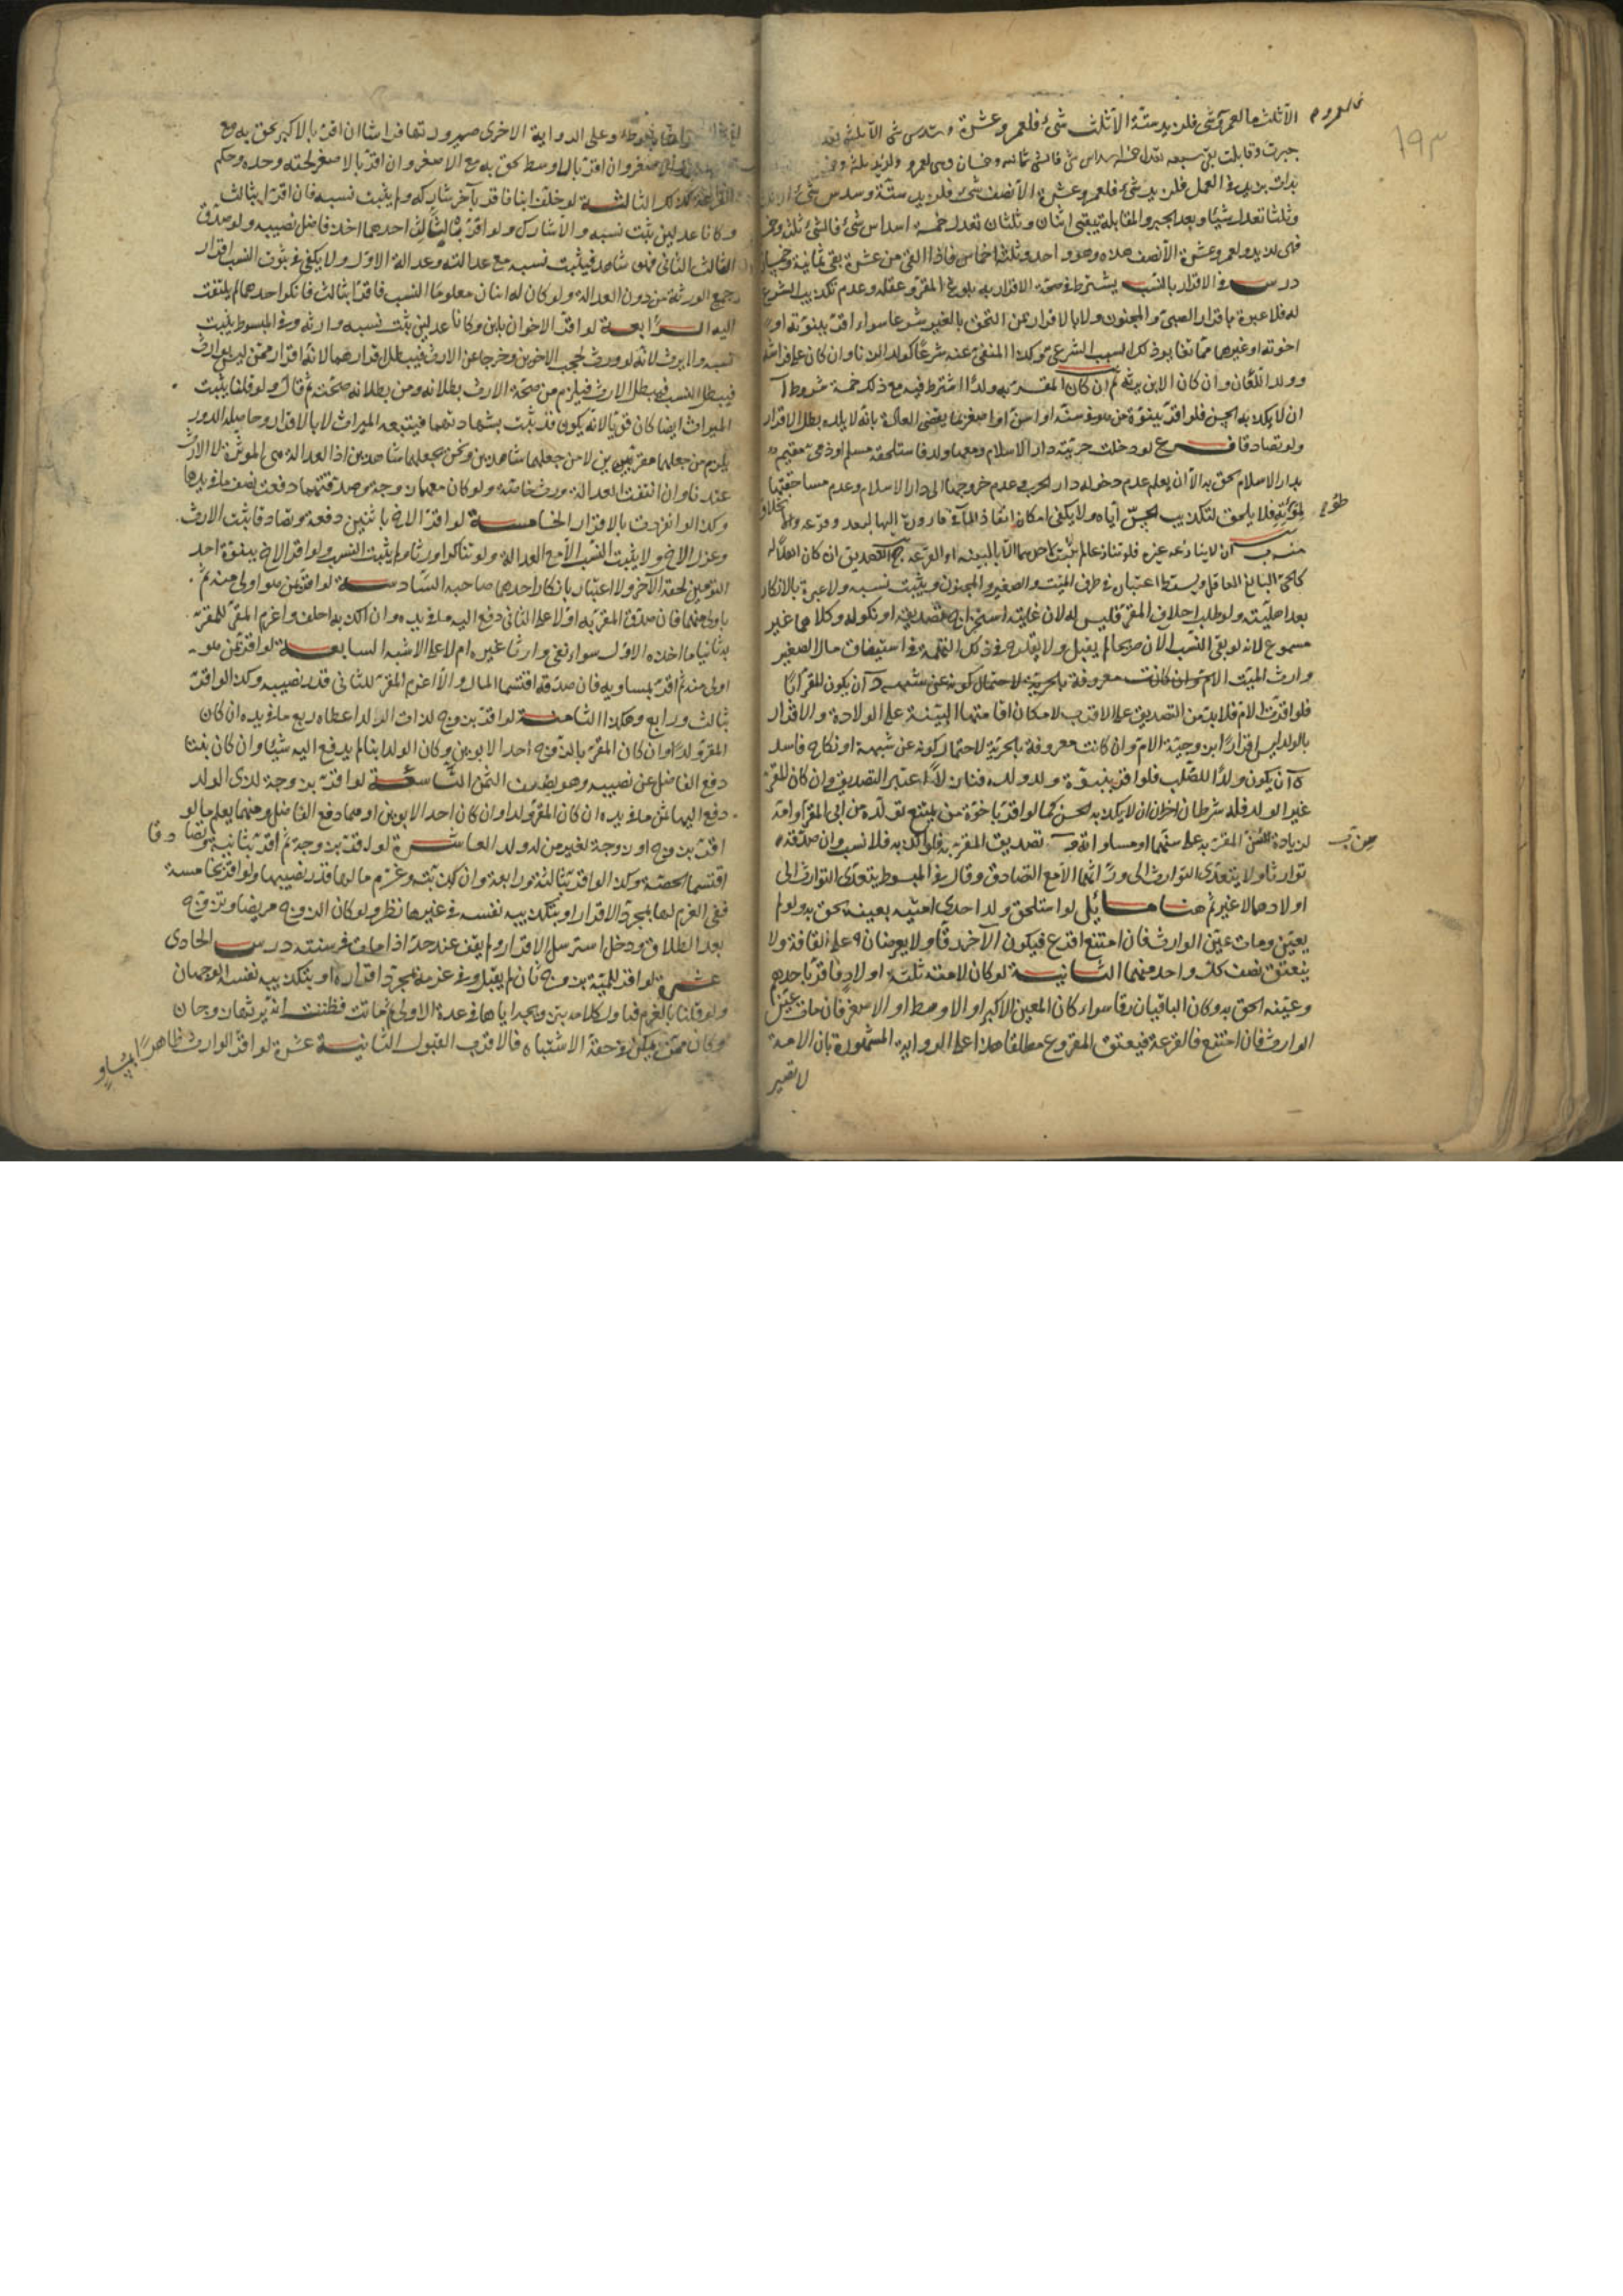 ١٩٣
الا ثلث ما لعمرو شئ فلزيد ستة الا ثلث شئ فلعمرو عشرة و سدس شئ الا ثلثى
جبرت وقابلت بقى سبعه تعدل خمسة اسداس شئ فالشئ ثمانيه وخمسان وهى لعمرو ولزيد ثلثة وخمس
بدات بزيد فى العمل فلزيد شئ فلعمرو عشرة الا نصف شئ فلزيد ستة وسدس شئ
وثلثا تعدل شيئا وبعد الجبر والمقابلة يبقى اثنان وثلثان تعدل خمسة اسداس شئ فالشئ ثلثة وخمس
فهى لزيد ولعمرو عشرة الا نصف هذه وهو واحد وثلثة اخماس فاذا القى من عشرة بقى ثمانية وخمسان
درس فى الاقرار بالنسب يشترط فى صحة الاقرار به بلوغ المقر وعقله وعدم تكذيب الشرع
له فلا عبرة باقرار الصبى والمجنون ولا بالاقرار بمن التحق بالغير شرعا سواء اقر ببنوته او
اخوته او غيرها مما تغاير ذلك السبب الشرعى وكذا المنفى عنه شرعا كولد الزنا وان كان على فراشه
وولد اللعان وان كان الابن يرثه ثم ان كان المقر به ولدا اشترط فيه مع ذلك خمسة شروط آ
ان لا يكذبه الحس فلو اقر ببنوة من هو فى سنه او اسن او اصغر بما يقضى العادة بانه لا يلده بطل الاقرار
ولو تصادقا فرع لو دخلت حربية دار الاسلام ومعها ولد فاستلحقه مسلم او ذمى مقيم
بدار الاسلام لحق به الا ان يعلم عدم دخوله دار الحرب وعدم خروجها الى دار الاسلام وعدم مساحقتها
لموته فلا يلحق لتكذيب الحس اياه ولا يكفى امكان انفاذ الماء فى قارورة اليها لبعده
ب ان لا ينازعه غيره فلو تنازعا لم يثبت لاحدهما الا بالبينه او القرعه ج التصديق ان كان الولد
كالحى البالغ العاقل ويسقط اعتباره فى طرف الميت والصغير والمجنون ويثبت نسبه ولا عبرة بالانكار
بعد اهليته ولو طلب احلاف المقر فليس له لان غايته استخراج تصديقه او نكوله وكلاهما غير
مسموع لانه لو نفى النسب الان صريحا لم يقبل ولا يقدح فى ذلك التهمة فى استيفات مال الصغير
وارث الميت الام وان كانت معروفة بالحرية لاحتمال كونه عن شبهة د ان يكون المقر ابا
فلو اقرت الام فلا بد من التصديق على الاقرب لامكان اقامتها البينة على الولادة والاقرار
بالولد ليس اقرارا بزوجية الام وان كانت معروفة بالحرية لاحتمال كونه عن شبهة او نكاح فاسد
ه ان يكون ولدا للصلب فلو اقر ببنوة ولد ولده فنازلا اعتبر التصديق وان كان المقر
غير الولد فله شرطان اخران ان لا يكذبه الحس كما لو اقر باخوة من يمتنع تولده من ابى المقر او امه
لزيادة سن المقر به على سنهما او مساواته وب تصديق المقر به فلو اكذبه فلا نسب وان صدقه
توارثا ولا يتعدى التوارث الى ورثتهما الا مع التصادق وقال فى المبسوط يتعدى التوارث الى
اولادهما لا غير ثم هنا مسائل لو استلحق ولد احدى امتيه بعينه لحق به ولو لم
يعين ومات عين الوارث فان امتنع اقرع فيكون الآخر رقا ولا يعرضان على القافة ولا
ينعتق نصف كل واحد منهما الثانية لو كان لامته ثلثة اولاد فاقر باحدهم
وعينه الحق به وكان الباقيان رقا سواء كان المعين الاكبر او الاوسط او الاصغر فان مات عين
الوارث فان امتنع فالقرعة فيعتق المقروع مطلقا هذا على الرواية المشهورة بان الامة
لا تصير
فراشا بالوطء وعلى الرواية الاخرى صيرورتها فراشا ان اقر بالاكبر لحق به مع
الاصغر وان اقر بالاوسط لحق به مع الاصغر وان اقر بالاصغر لحقه وحده وحكم
القرعة كذلك الثالثة لو خلف ابنا فاقر بآخر شاركه ولم يثبت نسبه فان اقرا بثالث
وكانا عدلين ثبت نسبه والا شارك ولو اقر بالثالث احدهما اخذ فاضل نصيبه ولو صدق
الثالث الثانى فهو شاهد فيثبت نسبه مع عدالته وعدالة الاول ولا يكفى فى ثبوت النسب اقرار
جميع الورثة من دون العدالة ولو كان له ابنان معلوما النسب فاقرا بثالث فانكر احدهما لم يلتفت
اليه الرابعة لو اقر الاخوان بابن وكانا عدلين ثبت نسبه وارثه وفى المبسوط يثبت
نسبه ولا يرث لانه لو ورث لحجب الاخوين وخرجا عن الارث فيبطل اقرارهما لانه اقرار ممن ليس بوارث
فيبطل النسب فيبطل الارث فيلزم من صحة الارث بطلانه ومن بطلانه صحته ثم قال ولو قلنا يثبت
الميراث ايضا كان قويا لانه يكون قد ثبت بشهادتهما فيتبعه الميراث لا بالاقرار وحاصله الدور
يلزم من جعلهما مقرين لا من جعلهما شاهدين ونحن نجعلهما شاهدين اذ العدالة هى المؤثرة لا الارث
عندنا وان انتفت العدالة ورث خاصة ولو كان معهما زوجة وصدقتهما دفعت نصف ما فى يدها
وكذا لو انفردت بالاقرار الخامسة لو اقر الاخ باثنين دفعة وتصادقا ثبت الارث
وعزل الاخ ولا يثبت النسب الا مع العدالة ولو تناكرا ورثا ولم يثبت النسب ولو اقر الاخ ببنوة احد
التوءمين لحقه الآخر ولا اعتبار بانكار احدهما صاحبه السادسة لو اقر بمن هو اولى منه ثم
باولى منهما فان صدق المقر به اولا على الثانى دفع اليه ما فى يده وان اكذبه احلف واغرم المقر للمقر
به ثانيا ما اخذه الاول سواء نفى وارثا غيره ام لا على الاشبه السابعة لو اقر بمن هو
اولى منه ثم اقر بمساويه فان صدقه اقتسما المال والا اغرم المقر للثانى قدر نصيبه وكذا لو اقر
بثالث ورابع وهكذا الثامنة لو اقر بزوج لذات الولد اعطاه ربع ما فى يده ان كان
المقر ولدا وان كان المقر بالزوج احد الابوين وكان الولد ابنا لم يدفع اليه شيئا وان كان بنتا
دفع الفاضل عن نصيبه وهو نصف الثمن التاسعة لو اقر بزوجة لذى الولد
دفع اليها ثمن ما فى يده ان كان المقر ولدا وان كان احد الابوين او هما دفع الفاضل ومنهما يعلم ما لو
اقر بزوج او زوجة لغير من له ولد العاشرة لو اقر بزوجة ثم اقر بثانية وتصادقا
اقتسما الحصة وكذا لو اقر بثالثة ورابعة وان كذبته وغرم ما لها قدر نصيبها ولو اقر بخامسة
ففى الغرم لها بمجرد الاقرار او بتكذيبه نفسه فى غيرها نظر ولو كان الزوج مريضا وتزوج
بعد الطلاق ودخل استرسل الاقرار ولم يقف عند حد اذا مات فى سنته درس الحادى
عشرة لو اقر للميتة بزوج ثان لم يقبل وفى غرمه بمجرد اقراره او بتكذيبه نفسه الوجهان
ولو قلنا بالغرم فتاول كلامه بتزويجه اياها فى عدة الاولى ثم ماتت فظننت انه يرثها زوجان
وكان ممن يمكن فى حقه الاشتباه فالاقرب القبول الثانية عشرة لو اقر الوارث ظاهرا بمساو